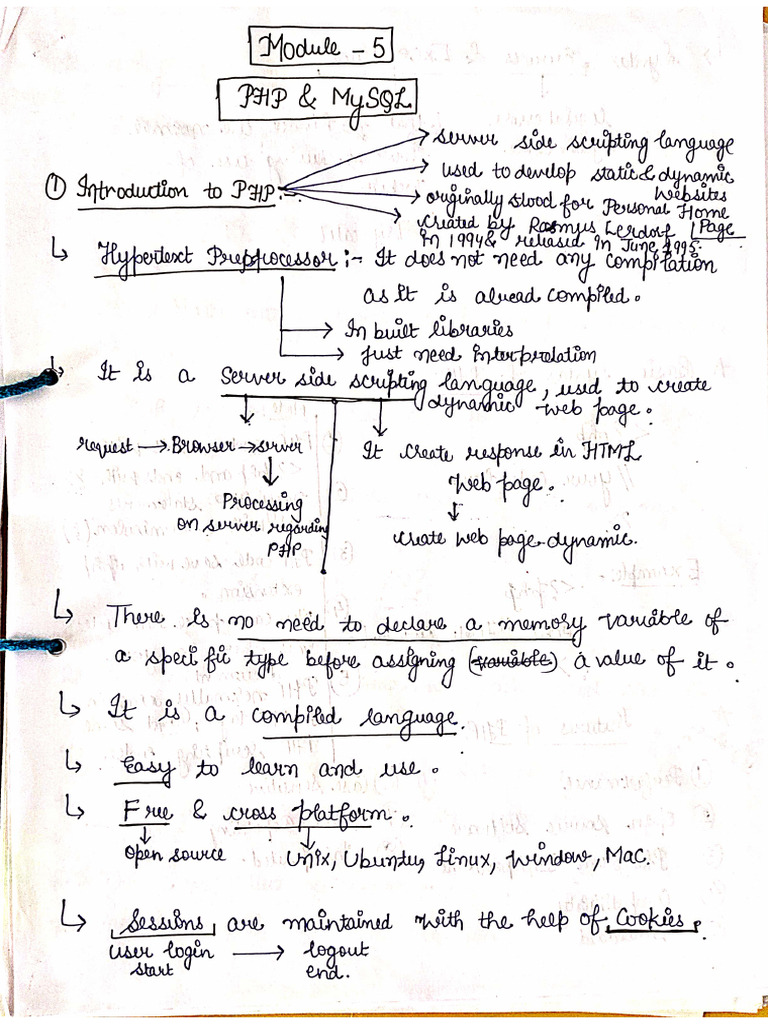 Module - 5
PHP & MySQL
① Introduction to PHP :-
server side scripting language
used to develop static & dynamic websites
originally stood for Personal Home Page
created by Rasmus Lerdorf
in 1994 & released in June, 1995.
↳ Hypertext Preprocessor :- It does not need any compilation
as it is alread compiled.
→ In built libraries
→ Just need Interpretation
↳ It is a Server side scripting language, used to create
dynamic web page.
request → Browser → server
Processing
on server regarding
PHP
It create response in HTML
Web page.
create web page dynamic.
↳ There is no need to declare a memory variable of
a specific type before assigning (variable) a value of it.
↳ It is a compiled language.
↳ Easy to learn and use.
↳ Free & cross platform.
Open source Unix, Ubuntu, Linux, Window, Mac.
↳ Sessions are maintained with the help of Cookies.
User login → logout
start end.